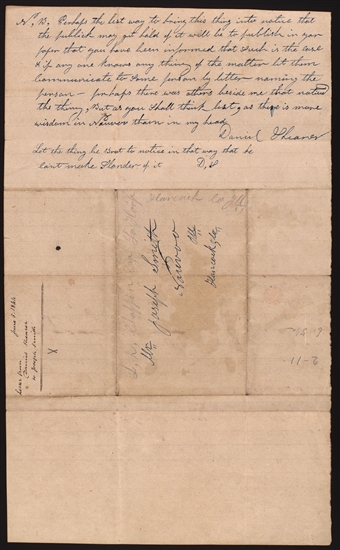 N, B, Perhaps the best way to bring this thing into notice that
the publick may get hold of it will be to publish in your
paper that you have been informed that such is the case
& if any one knows any thing of the matter let them
communicate to some person by letter naming the
person - perhaps there was others beside me that noticed
the thing, But as you shall think best, as there is more
wisdom in Nauvoo than in my head
Daniel Shearer
Let the thing be Brot to notice in that way that he
cant make Slander of it D, S
Hancock Co Ill.
Mr Joseph Smith
Nauvoo
Ill
Hancock Co
Letter from
Daniel Shearer
to Joseph Smith
X
2-11